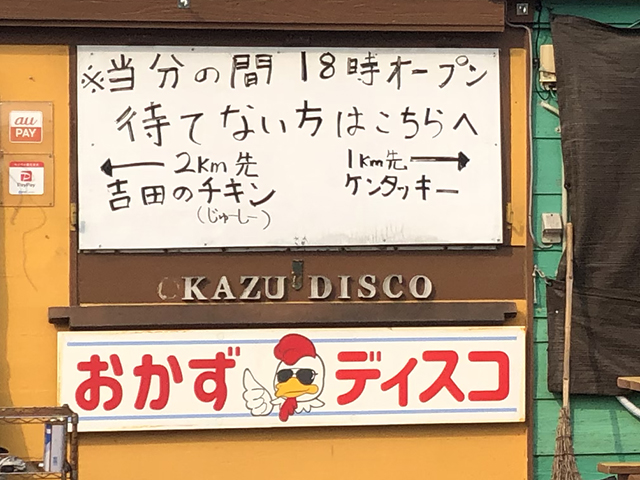 ※当分の間 18時オープン
待てない方はこちらへ
← 2km先
吉田のチキン
(じゅーしー)
1km先 →
ケンタッキー
OKAZU DISCO
おかずディスコ
au
PAY
PayPay